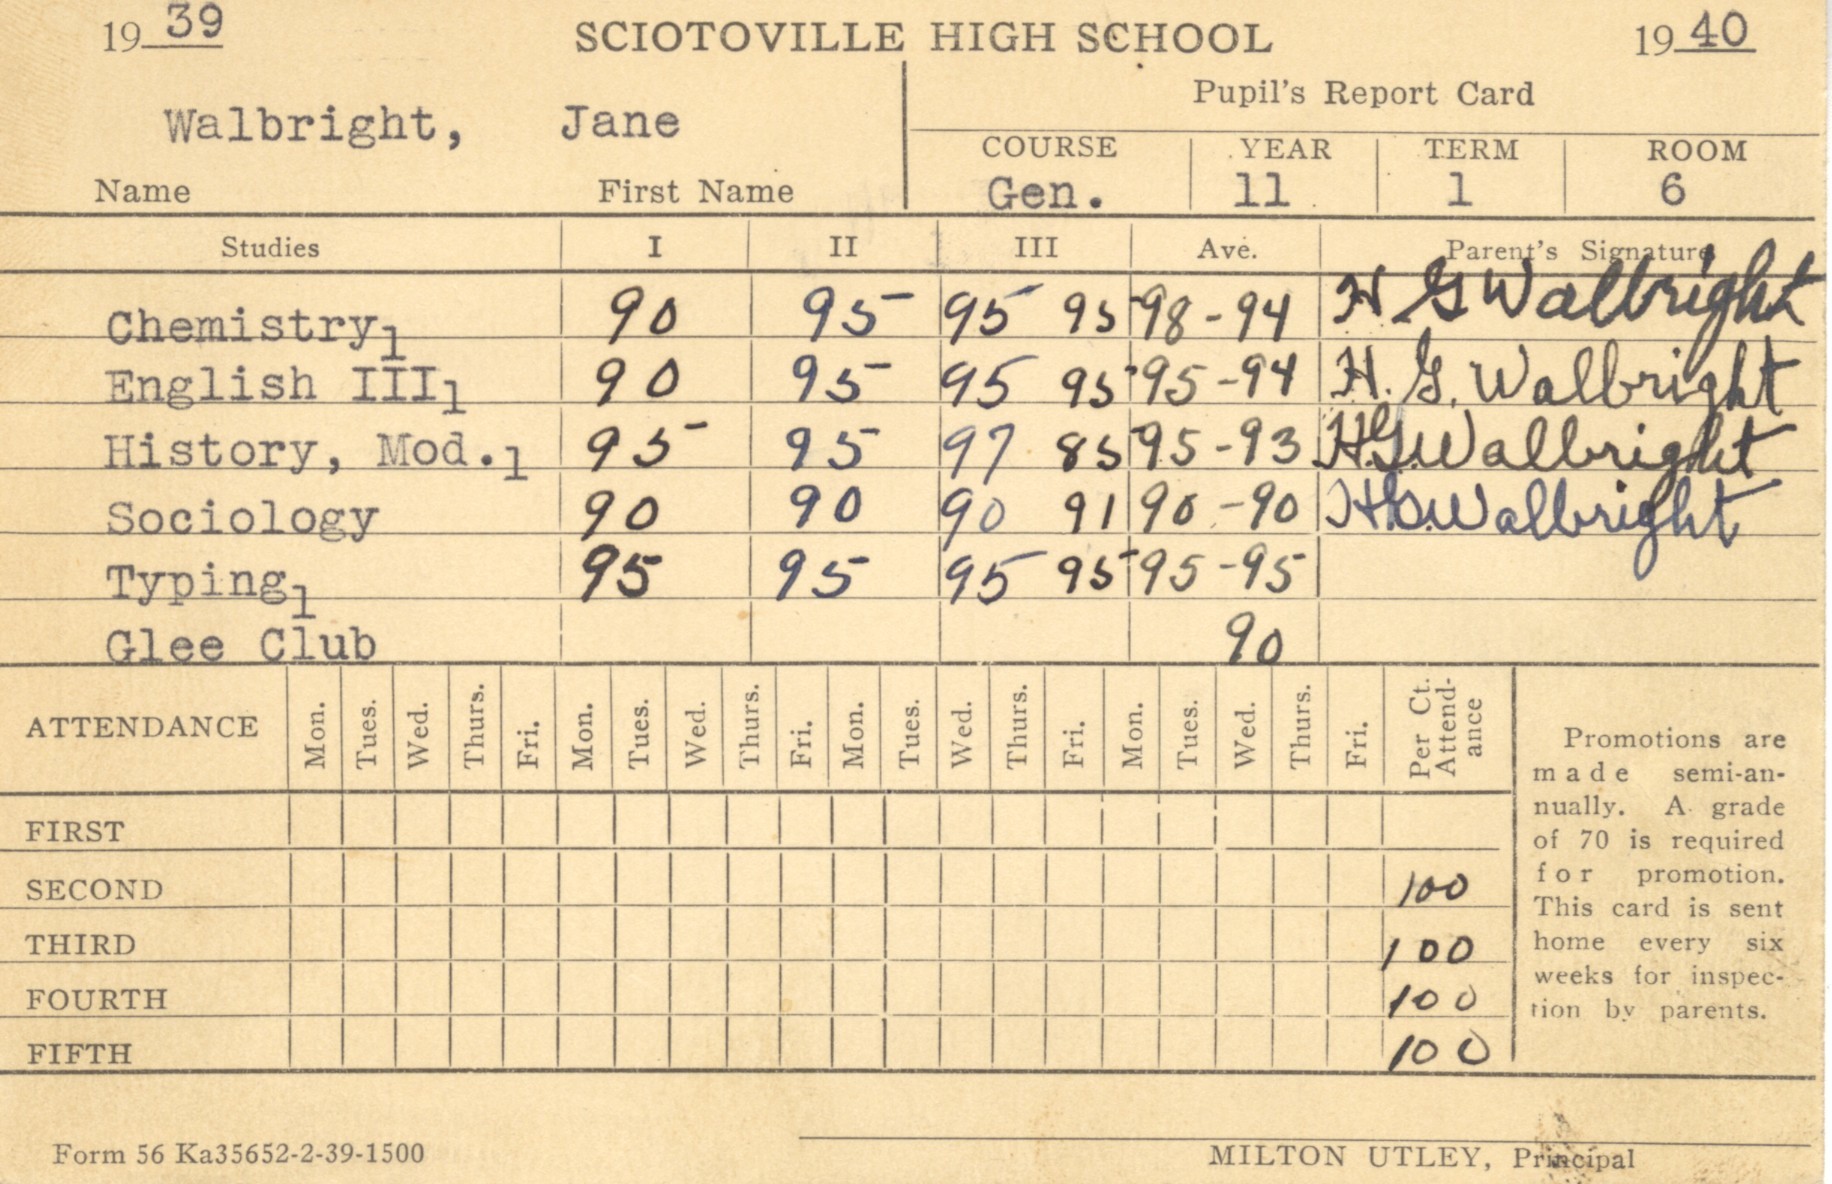 19 39 SCIOTOVILLE HIGH SCHOOL 19 40
Pupil's Report Card
Walbright, Jane
Name First Name
COURSE YEAR TERM ROOM
Gen. 11 1 6
Studies I II III Ave. Parent's Signature
Chemistry1 90 95 95 95 98-94 H G Walbright
English III1 90 95 95 95 95-94 H. G. Walbright
History, Mod.1 95 95 97 85 95-93 H.G. Walbright
Sociology 90 90 90 91 90-90 H.G. Walbright
Typing1 95 95 95 95 95-95
Glee Club 90
ATTENDANCE Mon. Tues. Wed. Thurs. Fri. Mon. Tues. Wed. Thurs. Fri. Mon. Tues. Wed. Thurs. Fri. Mon. Tues. Wed. Thurs. Fri. Per Ct. Attend-ance
FIRST
SECOND 100
THIRD 100
FOURTH 100
FIFTH 100
Promotions are
made semi-an-
nually. A grade
of 70 is required
for promotion.
This card is sent
home every six
weeks for inspec-
tion by parents.
Form 56 Ka35652-2-39-1500
MILTON UTLEY, Principal